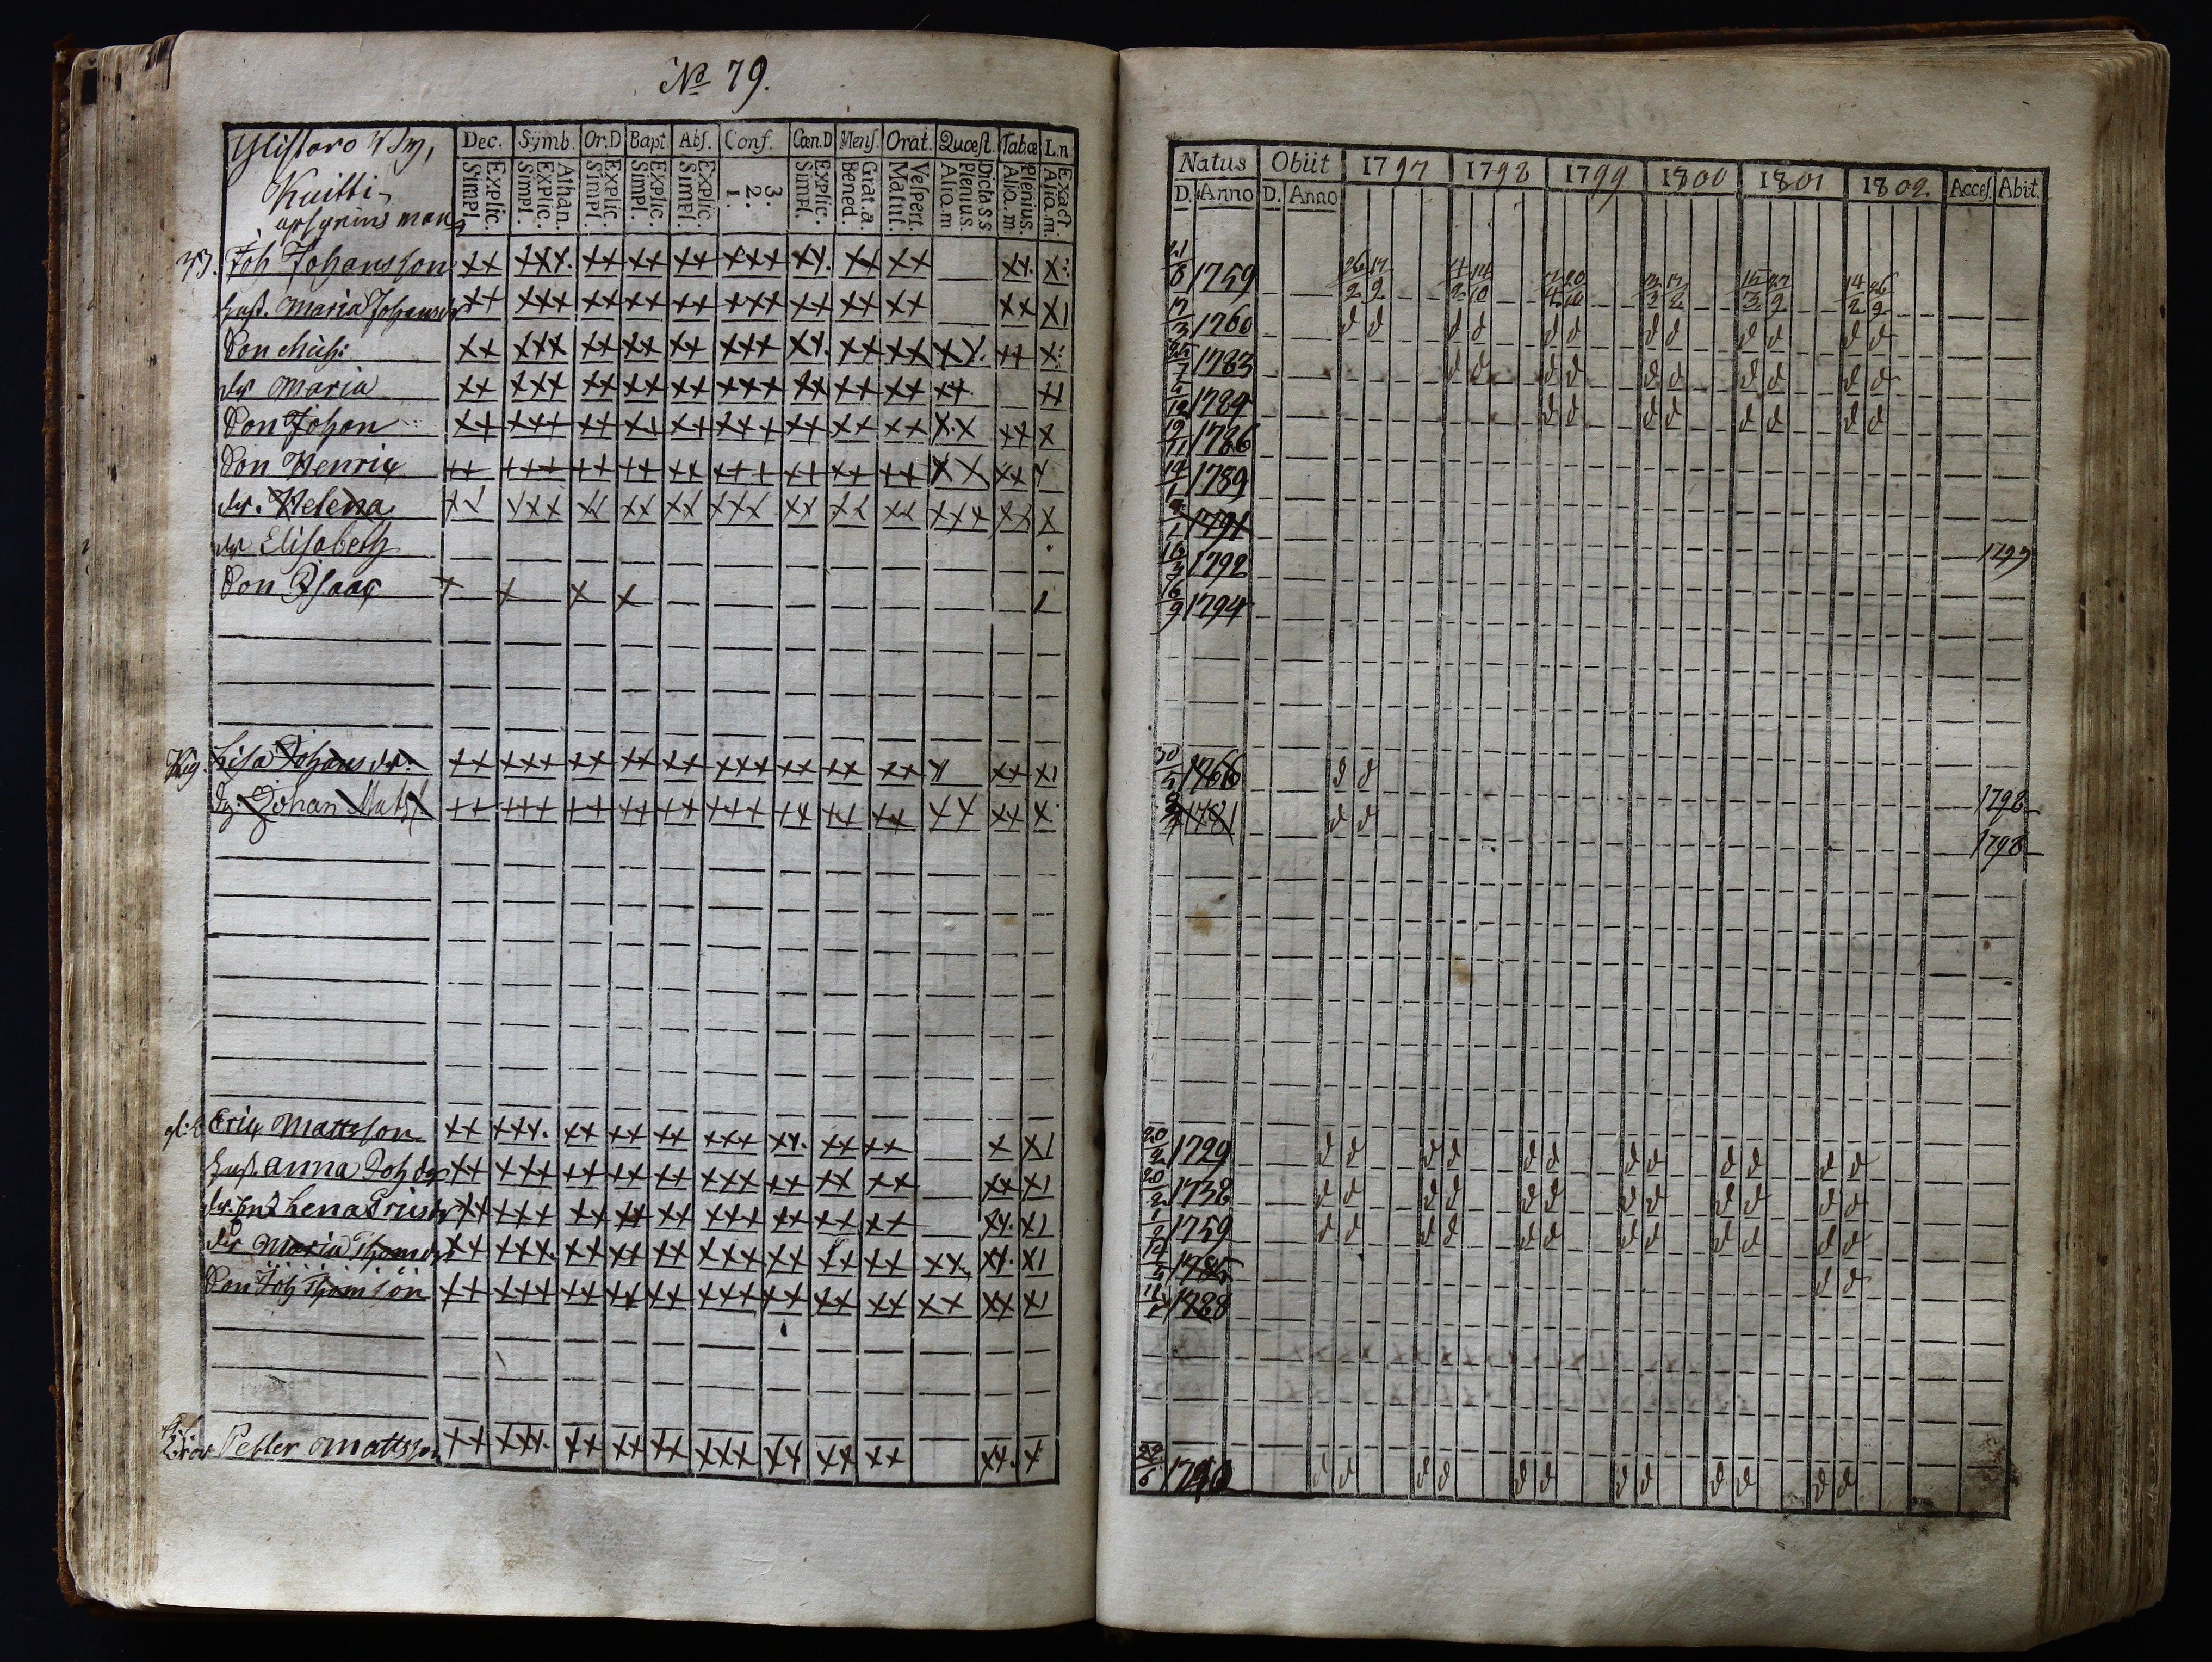 No 79.
Ylistaro By,
Kuitti
Dec. Symb. Or.D Bapt. Abs. Conf. Cœn.D Mens. Orat. Quœst. Tab.œ L.n
Explic. Simpl. Athan. Explic. Simpl. Explic. Simpl. Explic. Simpl. Explic. Simpl. 3. 2. 1. Explic. Simpl. Grat.a. Bened. Vespert. Matut. Dictass. Plenius. Alio.m Plenius. Alio.m. Exact. Alio.m.
Joh Johansson xx xxx. xx xx xx xxx xx. xx xx xx. x
hust. Maria xx xxx xx xx xx xxx xx xx xx xx x1
Son Mich: xx xxx xx xx xx xxx xx. xx xx xx. xx x
dr Maria xx xxx xx xx xx xxx xx xx xx xx. xx
Son Johan xx xxx xx xx xx xxx xx xx xx x.x xx x
Son Henric xx xxx xx xx xx xxx xx xx xx xx xx
dr. Helena xx xxx xx xx xx xxx xx xx xx xxx xx x
dr Elisabeth
Son Isaac x x x x
Pig. Lisa Johansdr: xx xxx xx xx xx xxx xx xx xx xx x1
Dg. Johan Matss. xx xxx xx xx xx xxx xx xx xx xx xx x
Eric Mattsson xx xxx. xx xx xx xxx xx. xx xx x x1
hust. Anna Joh dr xx xxx xx xx xx xxx xx xx xx xx x1
Lena xx xxx xx xx xx xxx xx xx xx xx. x1
dr Maria xx xxx. xx xx xx xxx xx xx xx xx, xx. x1
Son Joh Thomson xx xxx xx xx xx xxx xx xx xx xx xx x1
Petter Mattsson xx xxx. xx xx xx xxx xx xx xx xx. x
Natus Obiit 1797 1798 1799 1800 1801 1802 Acces. Abit.
D. Anno D. Anno
21/8 1759 26/2 17/9 4/2 14/10 14/2 26/9
17/3 1760 d d d d d d d d d d d d
1783 d d d d d d d d d d
1784 d d d d d d d d
19/11 1786
14/1 1789
1791
16/3 1792 1797
16/9 1794
30/5 1766 d d 1798
1781 d d 1798
20/2 1729 d d d d d d d d d d d d
20/2 1738 d d d d d d d d d d d d
1/2 1759 d d d d d d d d d d d d
14/5 1785 d d
1788
22/6 1740 d d d d d d d d d d d d